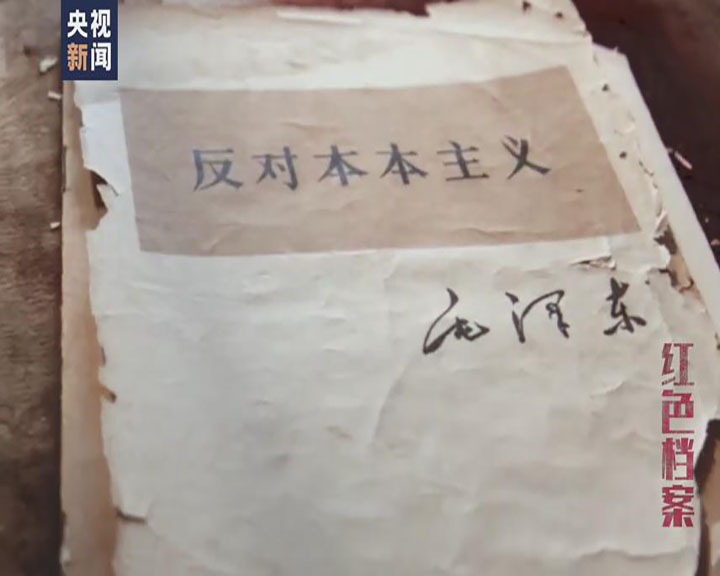 央视
新闻
反对本本主义
毛泽东
红色档案